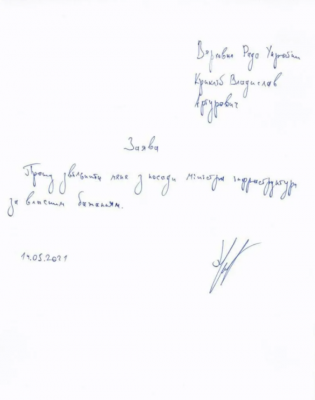 Верховна Рада України
Криклій Владислав
Артурович
Заява
Прошу звільнити мене з посади міністра інфраструктури
за власним бажанням.
14.05.2021